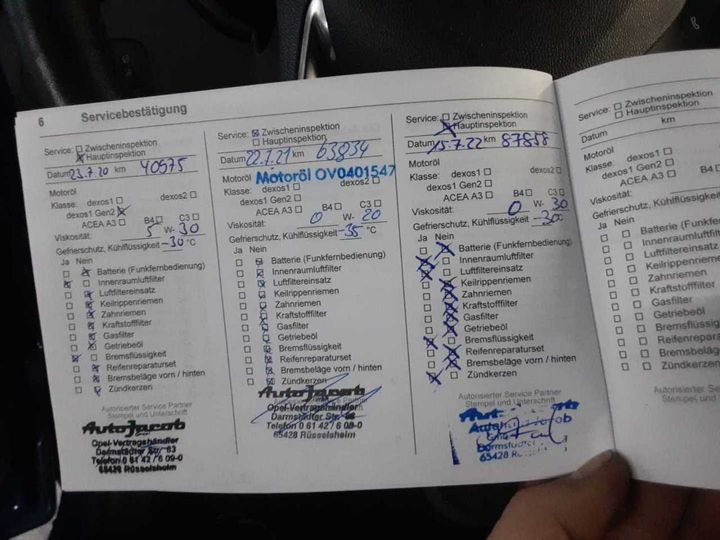 6 Servicebestätigung
Service: Zwischeninspektion
Hauptinspektion
Datum 23.7.20 km 40575
Motoröl
Klasse: dexos1 dexos2
dexos1 Gen2
ACEA A3 B4 C3
Viskosität: 5 W- 30
Gefrierschutz, Kühlflüssigkeit -30 °C
Ja Nein
Batterie (Funkfernbedienung)
Innenraumluftfilter
Luftfiltereinsatz
Keilrippenriemen
Zahnriemen
Kraftstofffilter
Gasfilter
Getriebeöl
Bremsflüssigkeit
Reifenreparaturset
Bremsbeläge vorn / hinten
Zündkerzen
Autorisierter Service Partner
Stempel und Unterschrift
Auto Jacob
Opel-Vertragshändler
Darmstädter Str. 63
Telefon 0 61 42 / 6 09-0
65428 Rüsselsheim
Service: Zwischeninspektion
Hauptinspektion
Datum 22.7.21 km 63834
Motoröl OV0401547
Klasse: dexos1 dexos2
dexos1 Gen2
ACEA A3 B4 C3
Viskosität: 0 W- 20
Gefrierschutz, Kühlflüssigkeit -35 °C
Ja Nein
Batterie (Funkfernbedienung)
Innenraumluftfilter
Luftfiltereinsatz
Keilrippenriemen
Zahnriemen
Kraftstofffilter
Gasfilter
Getriebeöl
Bremsflüssigkeit
Reifenreparaturset
Bremsbeläge vorn / hinten
Zündkerzen
Auto Jacob
Opel-Vertragshändler
Darmstädter Str.
Telefon 0 61 42 / 6 09-0
65428 Rüsselsheim
Service: Zwischeninspektion
Hauptinspektion
Datum 15.7.22 km 87858
Motoröl
Klasse: dexos1 dexos2
dexos1 Gen2
ACEA A3 B4 C3
Viskosität: 0 W- 30
Gefrierschutz, Kühlflüssigkeit -30 °C
Ja Nein
Batterie (Funkfernbedienung)
Innenraumluftfilter
Luftfiltereinsatz
Keilrippenriemen
Zahnriemen
Kraftstofffilter
Gasfilter
Getriebeöl
Bremsflüssigkeit
Reifenreparaturset
Bremsbeläge vorn / hinten
Zündkerzen
Autorisierter Service Partner
Stempel und Unterschrift
65428 Rüsselsheim
Service: Zwischeninspektion
Hauptinspektion
Datum km
Motoröl
Klasse: dexos1
dexos1 Gen2
ACEA A3 B4
Viskosität:
Gefrierschutz, Kühlflüssigkeit
Ja Nein
Batterie (Funkfernbe
Innenraumluftfilter
Luftfiltereinsatz
Keilrippenriemen
Zahnriemen
Kraftstofffilter
Gasfilter
Getriebeöl
Bremsflüssigkeit
Reifenreparaturset
Bremsbeläge vo
Zündkerzen
Autorisierter Ser
Stempel und U